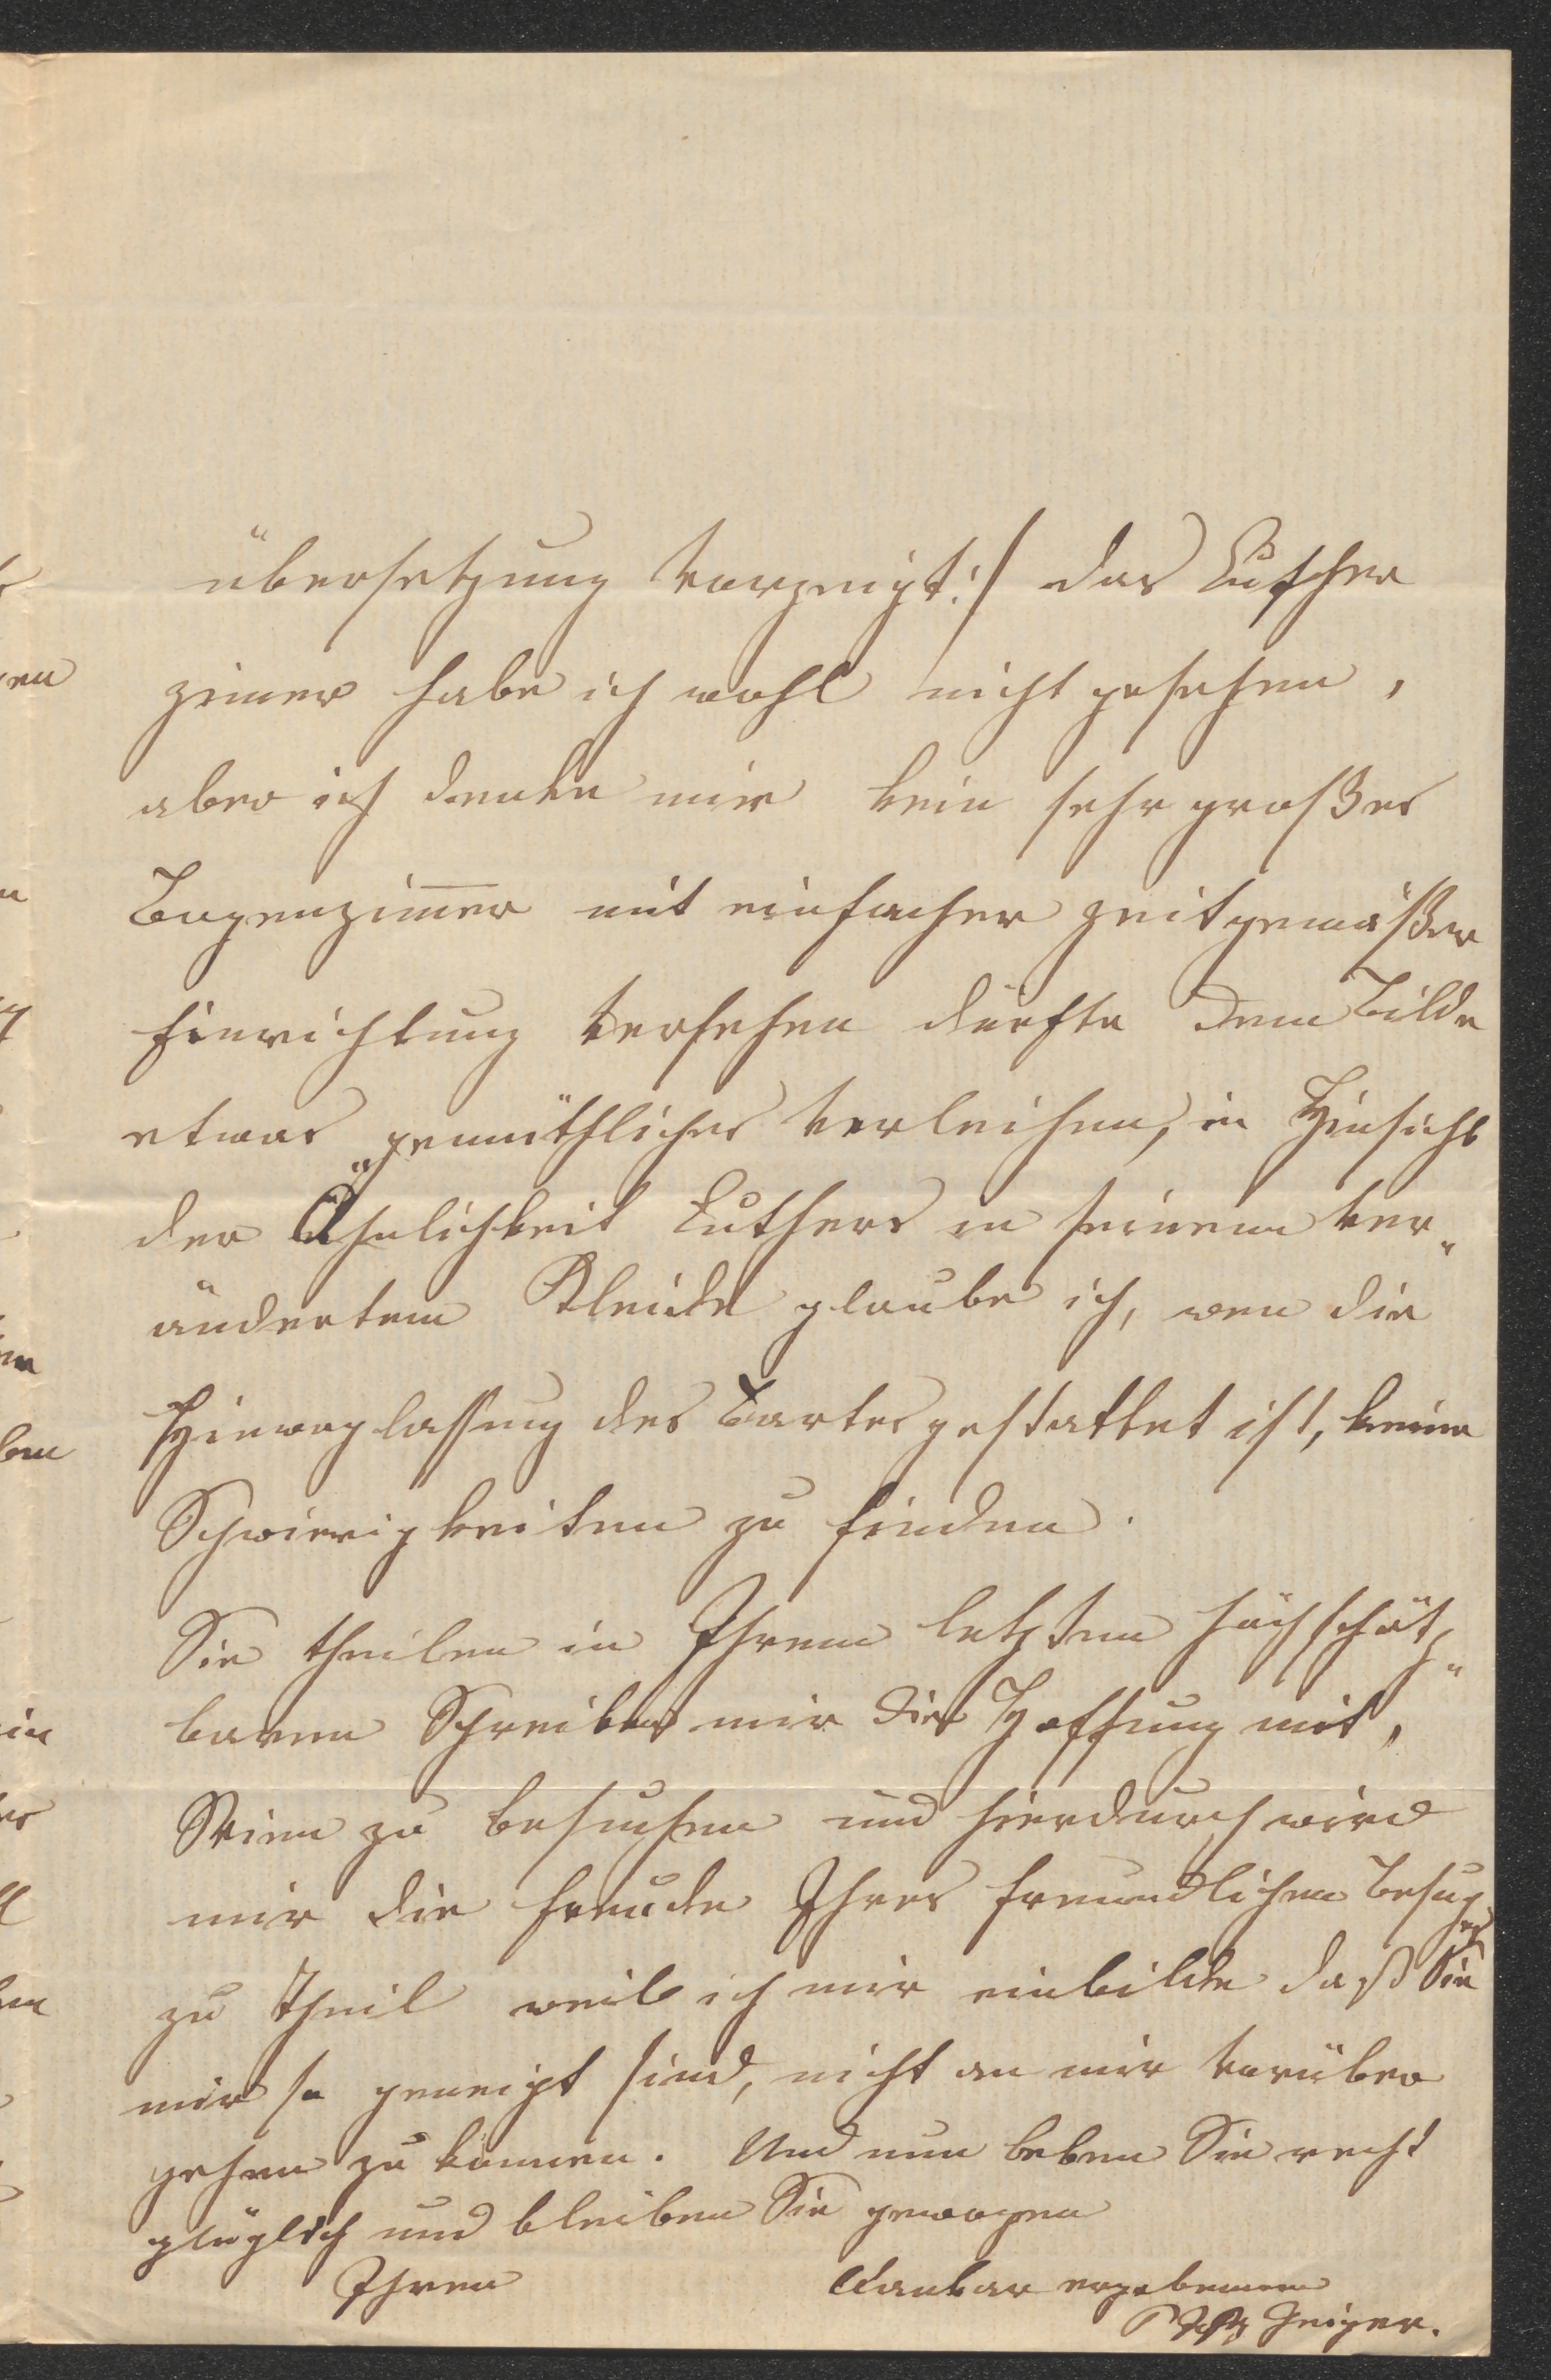 übersetzung vorzeigt:/ das Luther
zimer habe ich wohl nicht gesehen,
aber ich denke mir kein sehr großes
Bogenzim̅er mit einfacher zeitgemäßer
Einrichtung versehen dürfte dem Bilde
etwas gemüthliches verleihen, in Hinsicht
der Ähnlichkeit Luthers in seinem ver„
ändertem Kleide glaube ich, wen die
Hinweglassung des Bartes gestattet ist, keine
Schwierigkeiten zu finden.
Sie theilen in Ihrem letzten hochschätz„
baren Schreiben mir die Hoffnung mit,
Wien zu besuchen und hierdurch wird
mir die Freude Ihres freundlichen Besuches
zu Theil weil ich mir einbilde daß Sie
mir so geneigt sind, nicht an mir vorüber
gehen zu können. Und nun leben Sie recht
glüglich und bleiben Sie gewogen
Ihren dankbar ergebenen
Geiger.